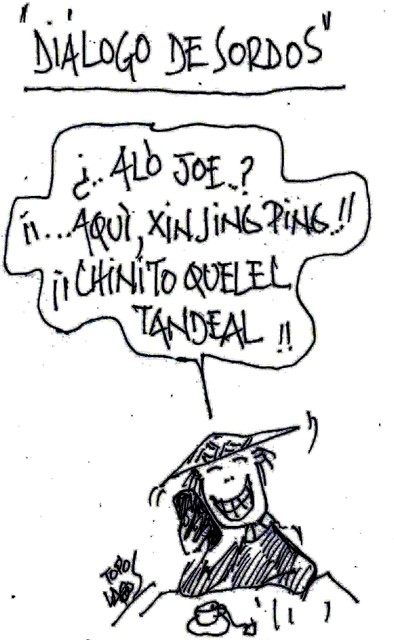 "DIÁLOGO DE SORDOS"
¿.. ALÒ JOE..?
¡¡...AQUÌ, XIN JING PING..!!
¡¡CHINITO QUELEL
TANDEAL !!